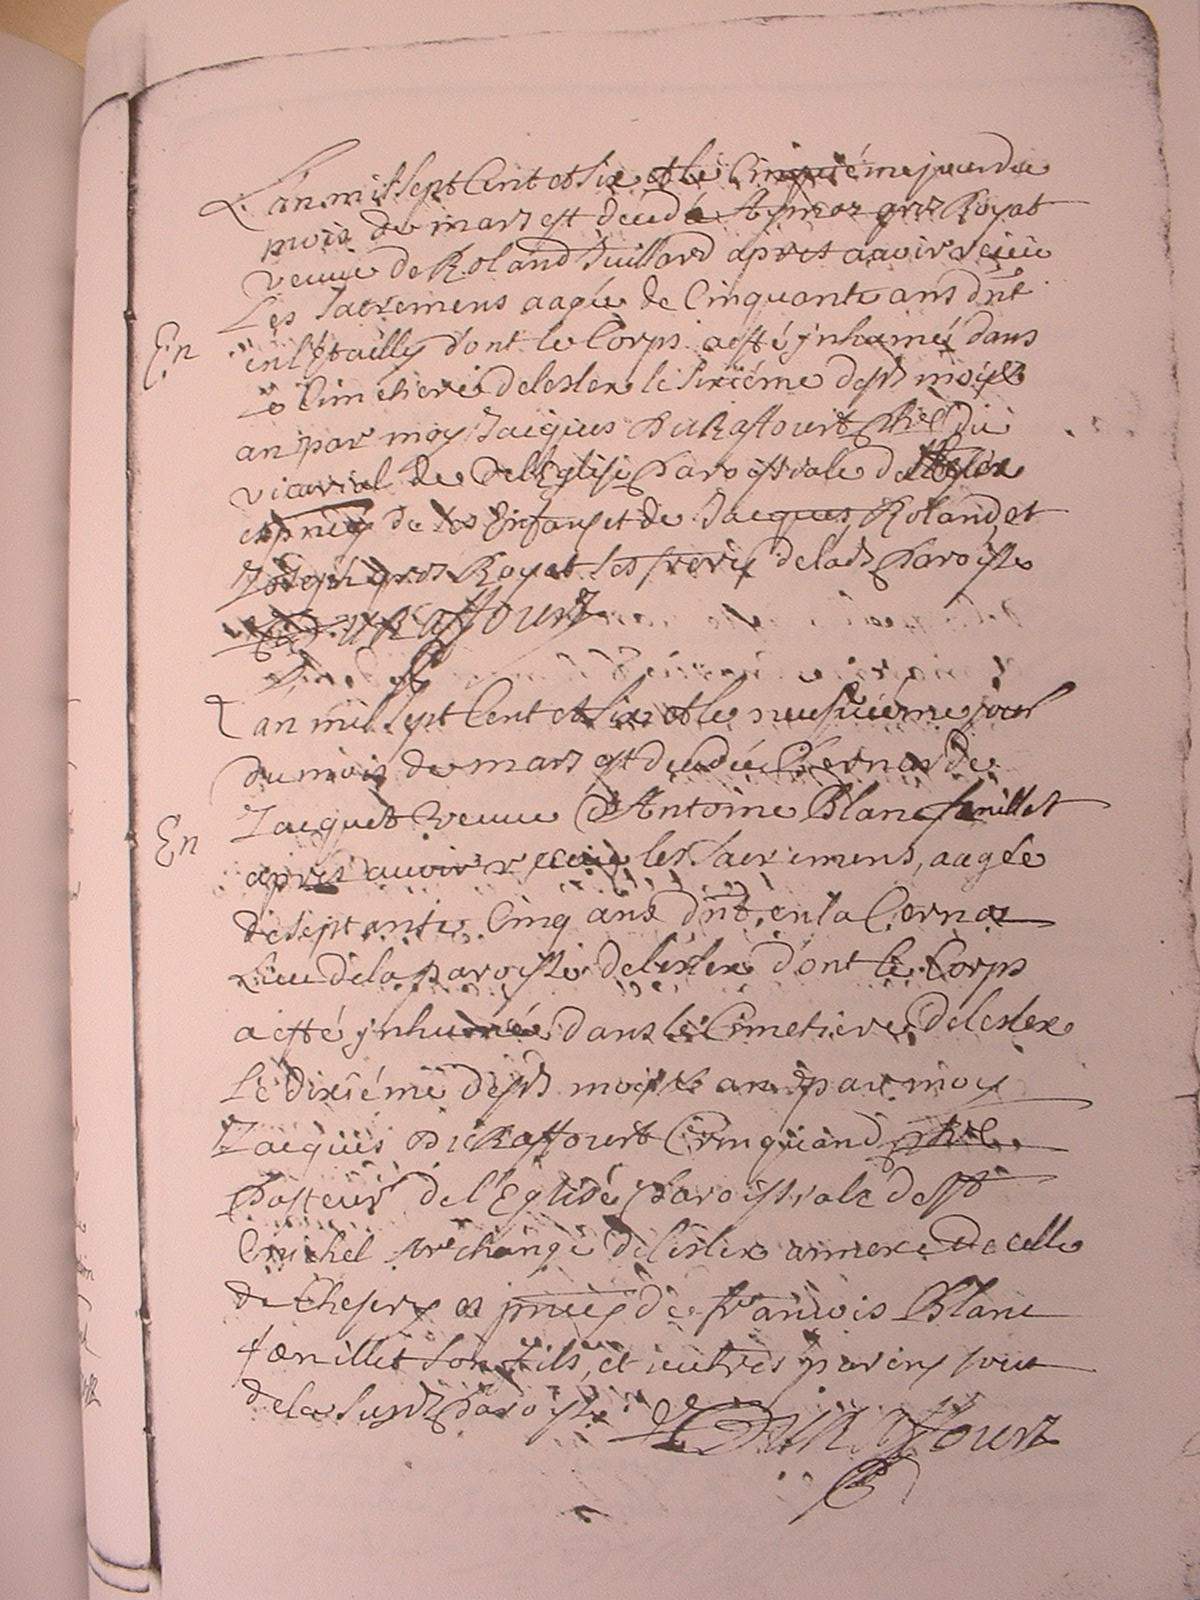 L'an mil sept Cent et six et le Cinquiéme jour du
mois de mars est decedé Aymoz gros Royat
veuve de Roland Juillard apres avoir receu
Les Sacremens aagée de Cinquante ans dnt
En
en l'Etailly d'ont le Corps a esté jnhumé dans
Le Cimetiere delesler le sixiéme desd mois &
an par moy Jacques DuRaffourt Du
vicarial de de l'Eglise Paroissiale de
et pnce de ses Enfans et de Jacques, Roland, et
Joseph gros Royat ses freres de lad Paroisse
DuRaffourt
L'an mil sept Cent et six et le neufviéme jour
du mois de mars est decedée Pernas De
Jacquet veuve d'Antoine Blanc fenillet
En
apres avoir receu les Sacremens, aagée
de septante Cinq ans dnt, en la Cernaz
Lieu de la paroisse delesler d'ont le Corps
a esté jnhumée dans le Cimetiere delesler
Le dixiéme desd mois & an par moy
Jacques DuRaffourt
Pasteur de l'Eglise Paroissiale de St
michel Archange delesler annexe de celle
de Thesery et pnce de francois Blanc
fenillet son fils, et autres parens tous
de la susd Paroisse DuRaffourt